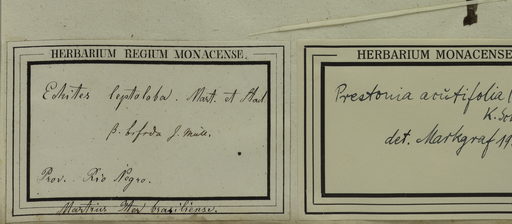 HERBARIUM REGIUM MONACENSE.
Echites leptoloba. Mart. et Stad.
β. bifida J. Müll.
Prov. Rio Negro.
Martius Iter brasiliense.
HERBARIUM MONACENSE
Prestonia acutifolia (
K. Sch
det. Markgraf 19